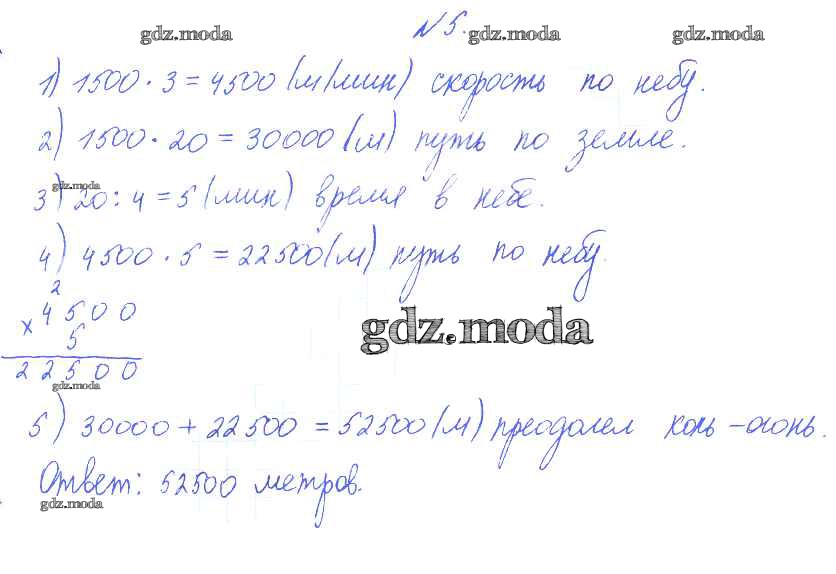 № 5.
gdz.moda gdz.moda gdz.moda
1) 1500 · 3 = 4500 (м/мин) скорость по небу.
2) 1500 · 20 = 30000 (м) путь по земле.
gdz.moda
3) 20 : 4 = 5 (мин) время в небе.
4) 4500 · 5 = 22500 (м) путь по небу.
2
× 4500
5
gdz.moda
22500
gdz.moda
5) 30000 + 22500 = 52500 (м) преодолел конь-огонь.
Ответ: 52500 метров.
gdz.moda gdz.moda gdz.moda